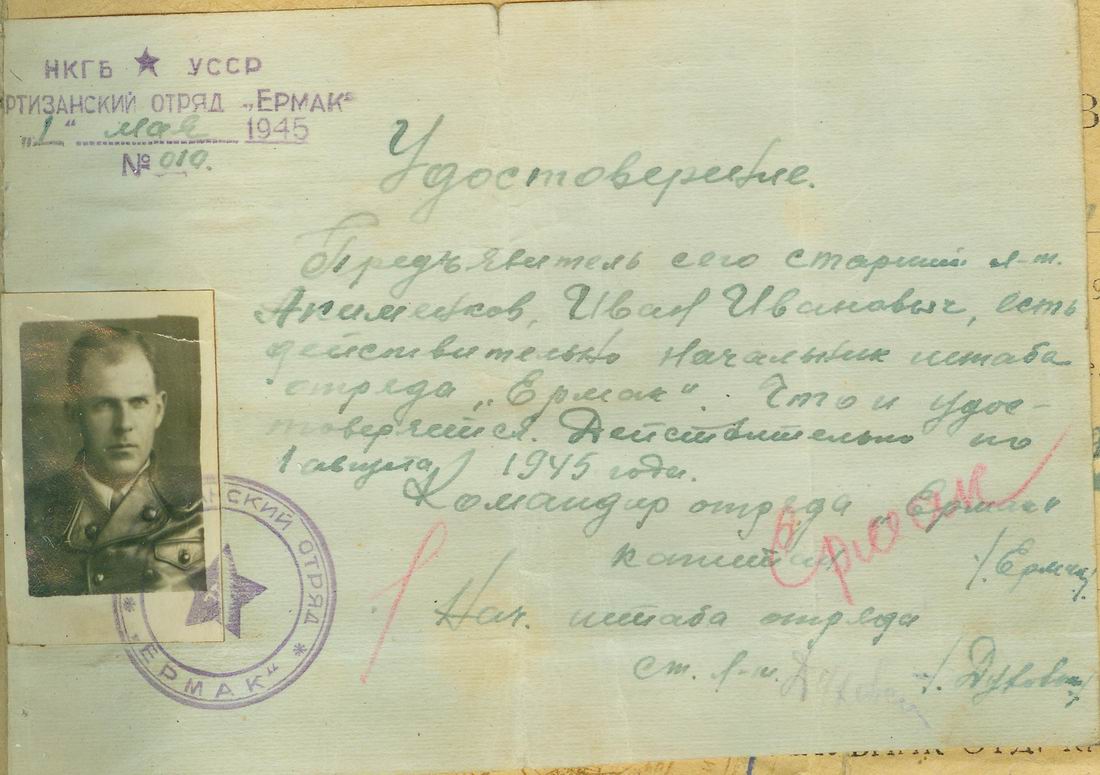 НКГБ ★ УССР
РТИЗАНСКИЙ ОТРЯД „ЕРМАК“
„1“ мая 1945
№ 019.
Удостоверение.
Предъявитель сего старший л-т.
Акименков, Иван Иванович, есть
действительно начальник штаба
отряда „Ермак“. Что и удос-
товеряется. Действительно по
1 августа 1945 года.
Командир отряда „Ермак“
капитан Ермак /Ермак/
Нач. штаба отряда
ст. л-т.
НСКИЙ ОТРЯД * „ЕРМАК“ *